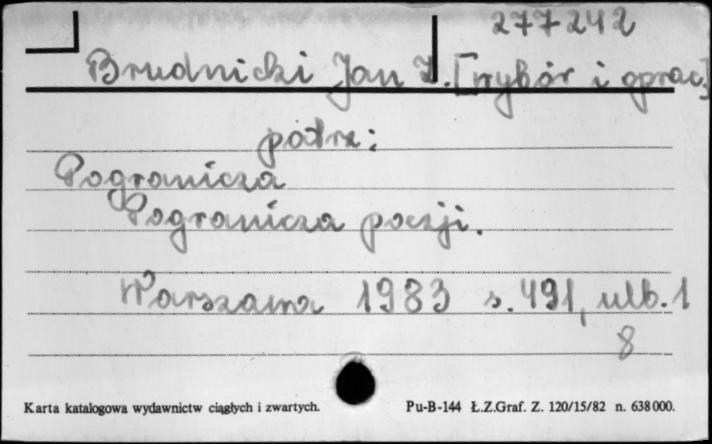 277242
Brudnicki Jan Z. [wybór i oprac.]
patrz:
Pogranicza
Pogranicza poezji.
Warszawa 1983 s. 491, nlb. 1
8
Karta katalogowa wydawnictw ciągłych i zwartych. Pu-B-144 Ł.Z.Graf. Z. 120/15/82 n. 638000.